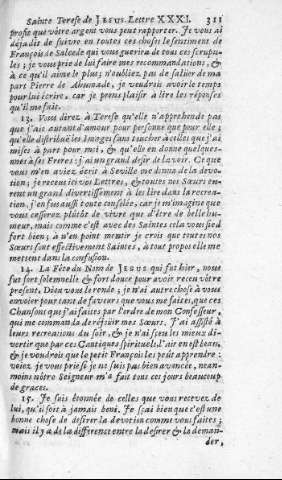 Sainte Terese de JESUS. Lettre XXXI. 311
profit que vôtre argent vous peut rapporter. Je vous ai
déja dit de suivre en toutes ces choses le sentiment de
François de Salcede qui vous guerira de tous ces scrupu-
les ; je vous prie de lui faire mes recommandations, &
à ce qu'il aime le plus ; n'oubliez pas de saluër de ma
part Pierre de Ahumade, je voudrois avoir le temps
pour lui écrire, car je prens plaisir à lire les réponses
qu'il me fait.
13. Vous direz à Terese qu'elle n'apprehende pas
que j'aie autant d'amour pour personne que pour elle ;
qu'elle distribuë les Images sans toucher à celles que j'ai
mises à part pour moi, & qu'elle en donne quelques-
unes à ses Freres : j'ai un grand desir de la voir. Ce que
vous m'en aviez écrit à Seville me donna de la devo-
tion ; je receus ici vos Lettres, & toutes nos Sœurs eu-
rent un grand divertissement à les lire dans la recrea-
tion, j'en fus aussi toute consolée, car je m'imagine que
vous cesserez plûtôt de vivre que d'être de belle hu-
meur, mais comme c'est avec des Saintes cela vous sied
fort bien ; à n'en point mentir je crois que toutes nos
Sœurs sont effectivement Saintes, à tout propos elle me
mettent dans la confusion.
14. La Fête du Nom de JESUS qui fut hier, nous
fut fort solemnelle & fort douce pour avoir receu vôtre
present, Dieu vous le rende ; je n'ai autre chose à vous
envoier pour tans de faveurs que vous me faites, que ces
Chansons que j'ai faites par l'ordre de mon Confesseur,
qui me commanda de réjoüir mes Sœurs. J'ai assisté à
leurs recreations du soir, & je n'ai sceu les mieux di-
vertir que par ces Cantiques spirituels, l'air en est beau,
& je voudrois que le petit François les peût apprendre :
voiez je vous prie si je ne suis pas bien avancée, nean-
moins nôtre Seigneur m'a fait tous ces jours beaucoup
de graces.
15. Je suis étonnée de celles que vous recevez de
lui, qu'il soit à jamais beni. Je sçai bien que c'est une
bonne chose de desirer la devotion comme vous faites ;
mais il y a de la difference entre la desirer & la deman-
der,